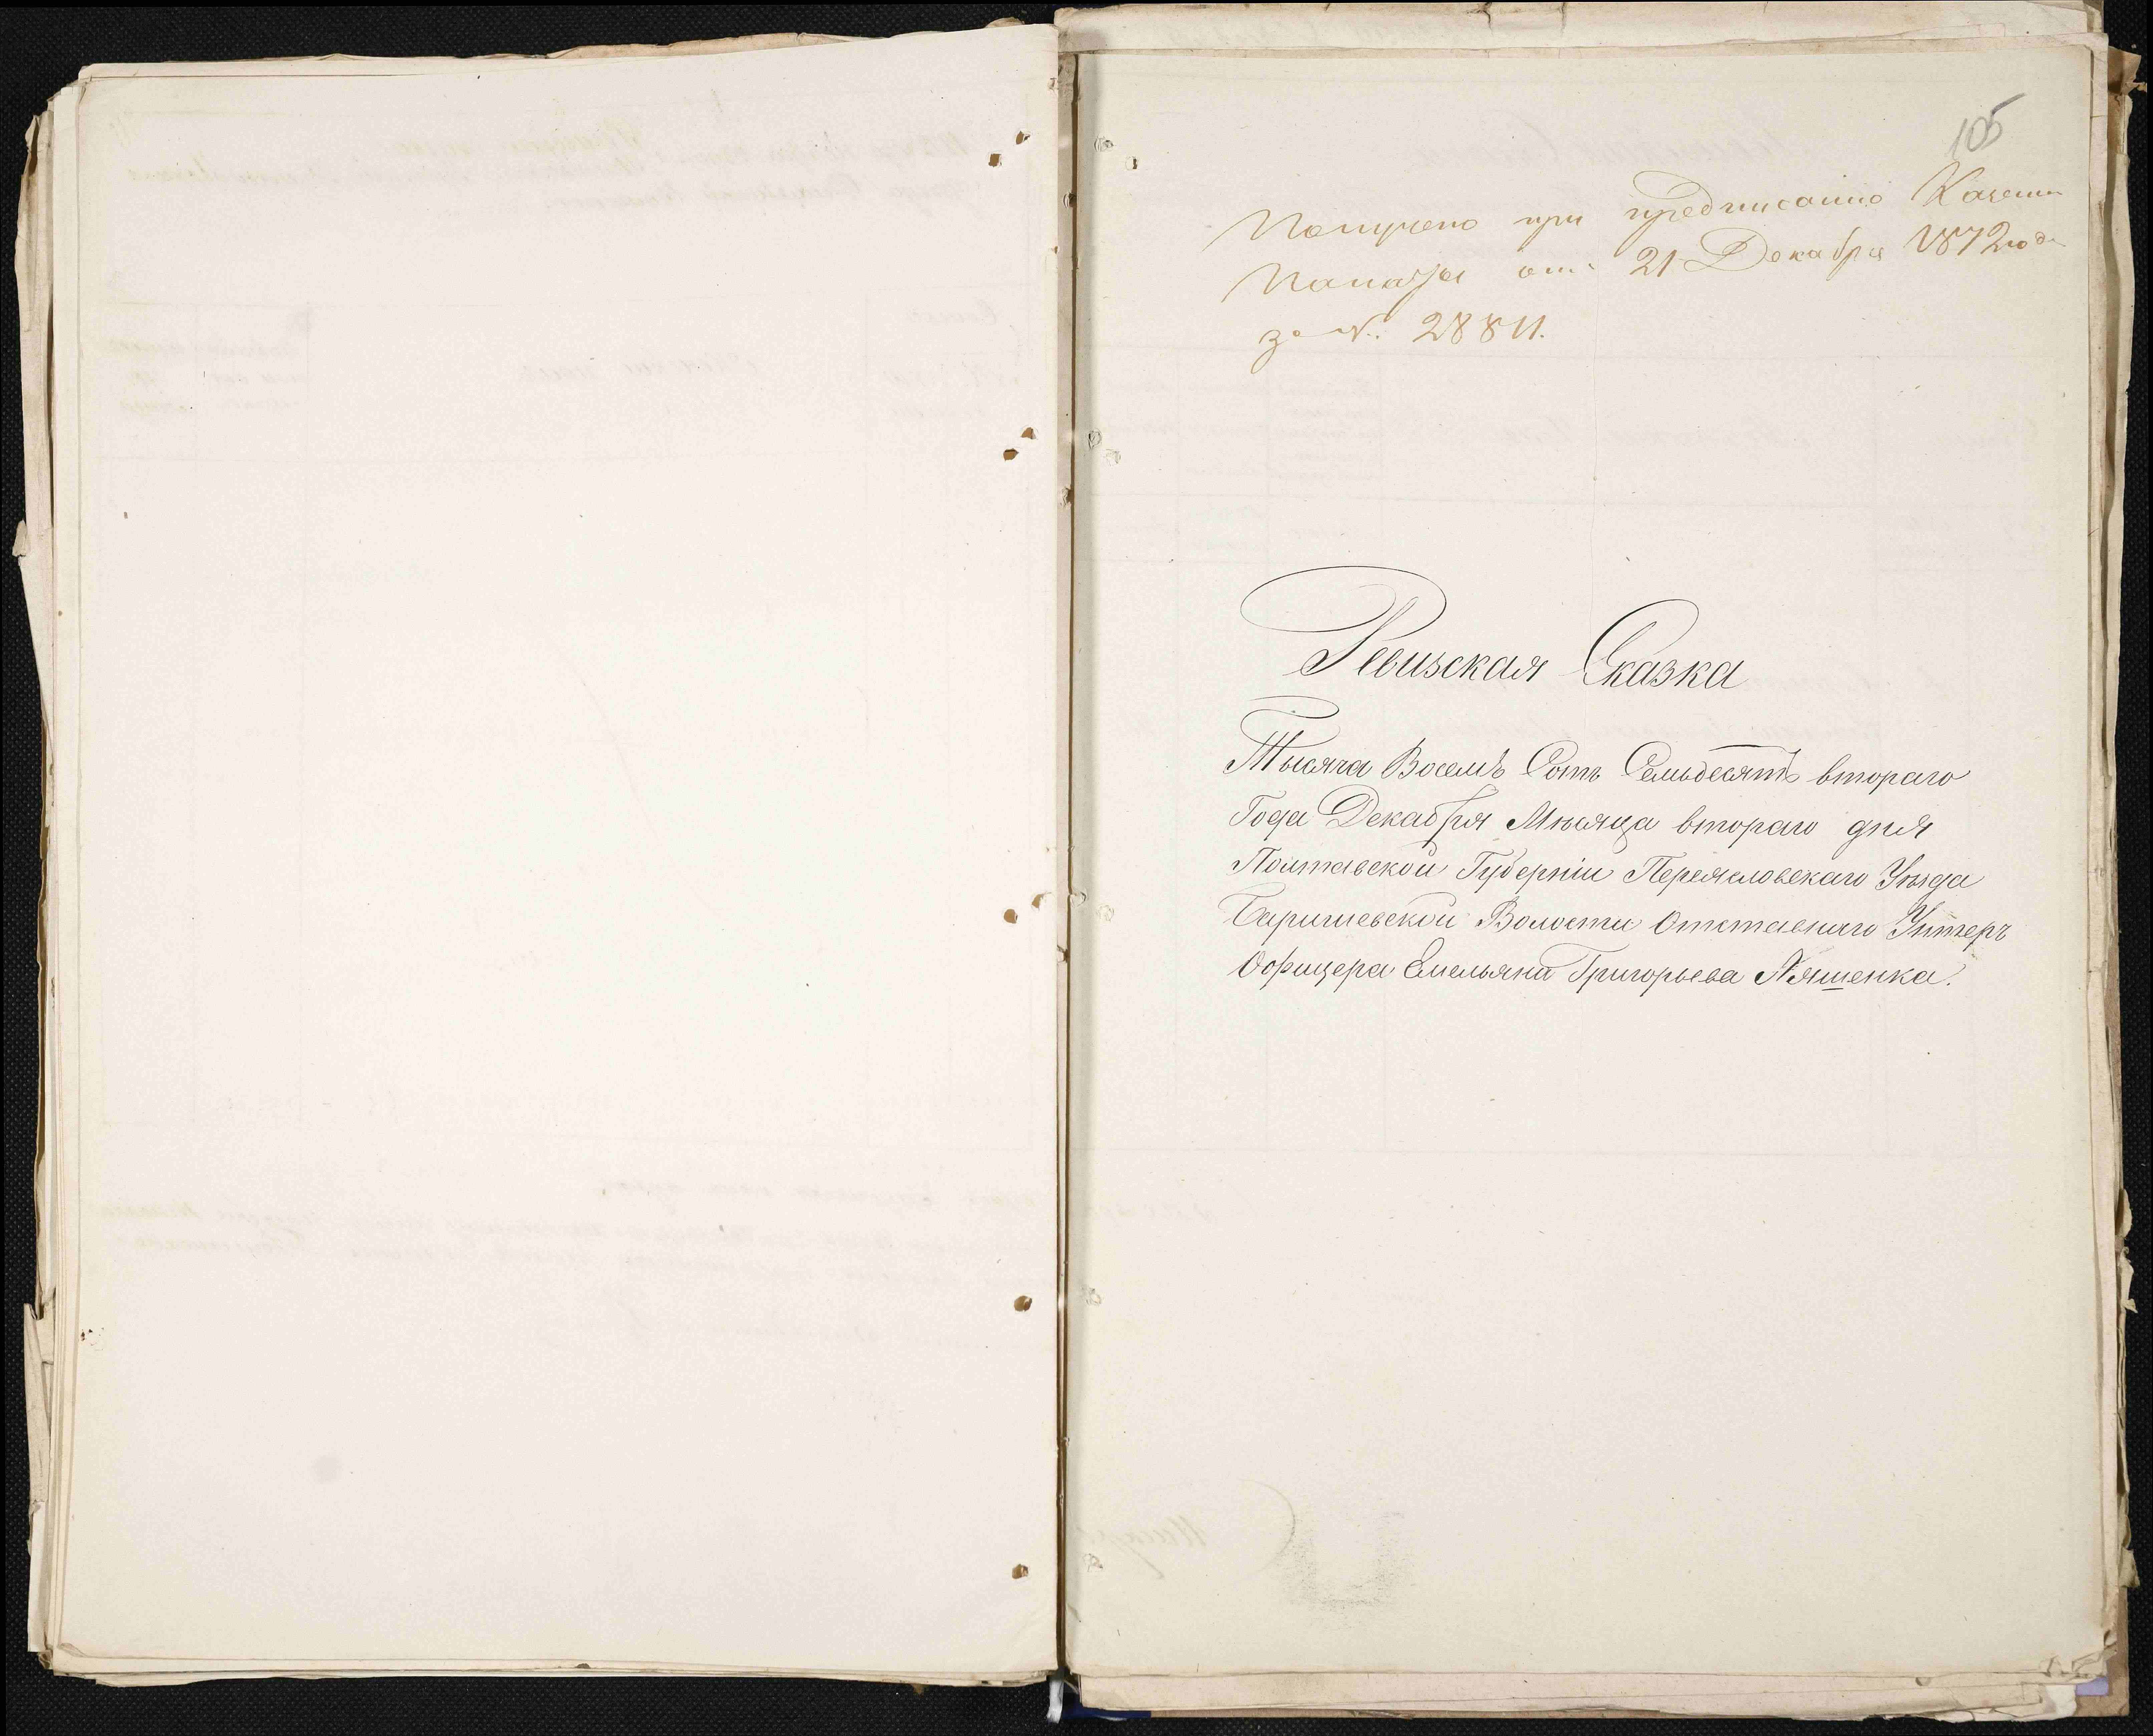 105
Получено при предписанію Казенн
Палаты отъ 21 Декабря 1872 года
за №: 28811.
Ревизская Сказка
Тысяча Восемъ Сотъ Семьдесятъ втораго
Года Декабря Мѣсяца втораго дня
Полтавской Губерніи Переясловскаго Уѣзда
Баришевской Волости Отставнаго Унтеръ
Офицера Емельяна Григорьева Ляшенка.